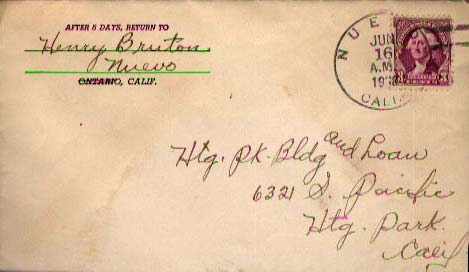 AFTER 5 DAYS, RETURN TO
Henry Bruton
Nuevo
ONTARIO, CALIF.
NUE
JUN
16
A.M.
193
CALIF.
3 3
Htg. Pk. Bldg and Loan
6321 S. Pacific
Htg. Park.
Calif